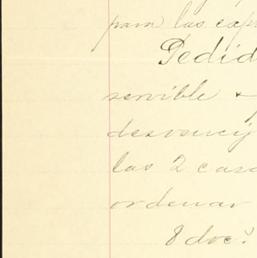 para las exp
Pedid
servible &
desvencij
las 2 casa
ordenar
8 doc.